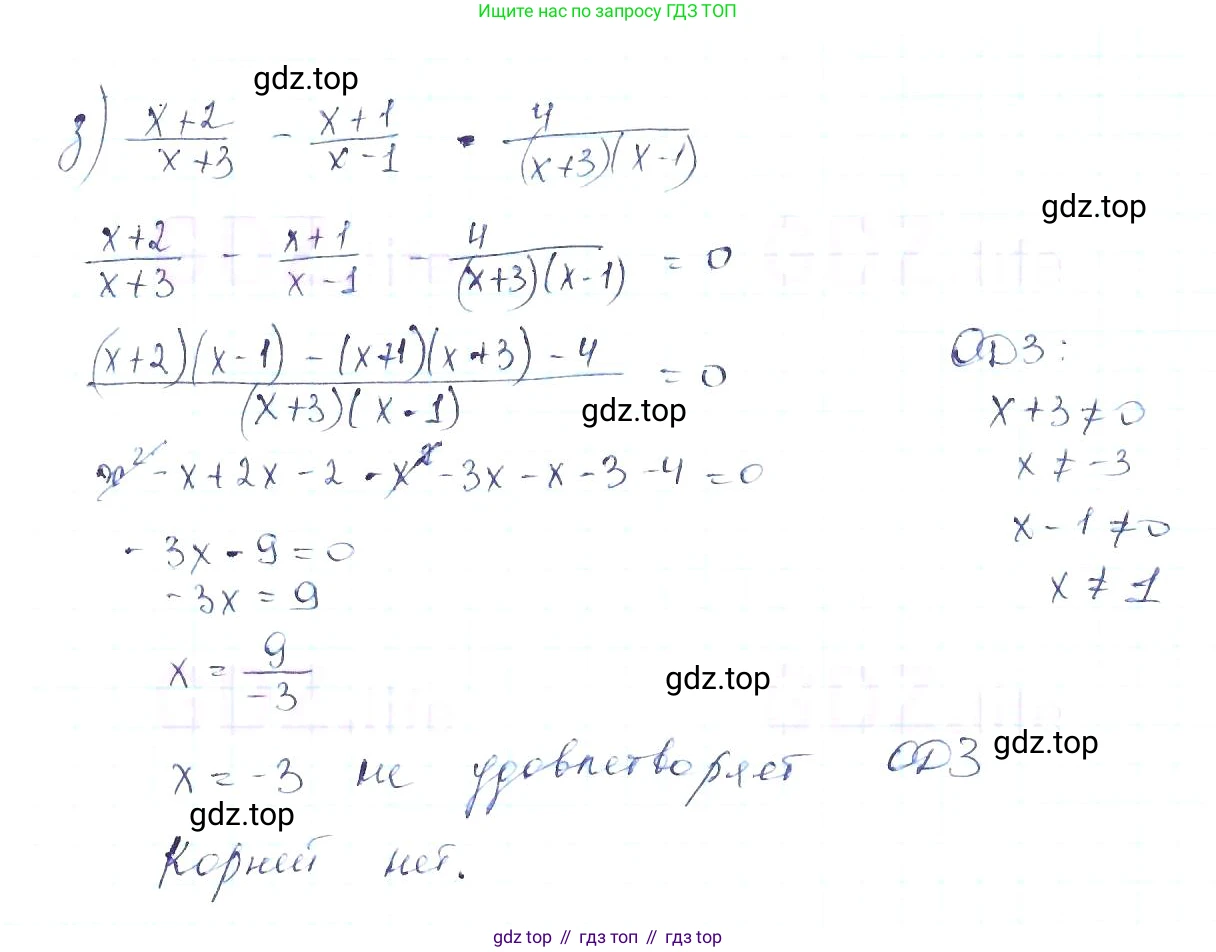 Ищите нас по запросу ГДЗ ТОП
gdz.top
з) \frac{x+2}{x+3} - \frac{x+1}{x-1} = \frac{4}{(x+3)(x-1)}
gdz.top
\frac{x+2}{x+3} - \frac{x+1}{x-1} - \frac{4}{(x+3)(x-1)} = 0
\frac{(x+2)(x-1) - (x+1)(x+3) - 4}{(x+3)(x-1)} = 0
gdz.top
x² - x + 2x - 2 - x² - 3x - x - 3 - 4 = 0
- 3x - 9 = 0
- 3x = 9
x = \frac{9}{-3}
x = -3 не удовлетворяет ОДЗ
gdz.top
gdz.top
gdz.top
Корней нет.
ОДЗ:
x + 3 ≠ 0
x ≠ -3
x - 1 ≠ 0
x ≠ 1
gdz top // гдз топ // gdz top